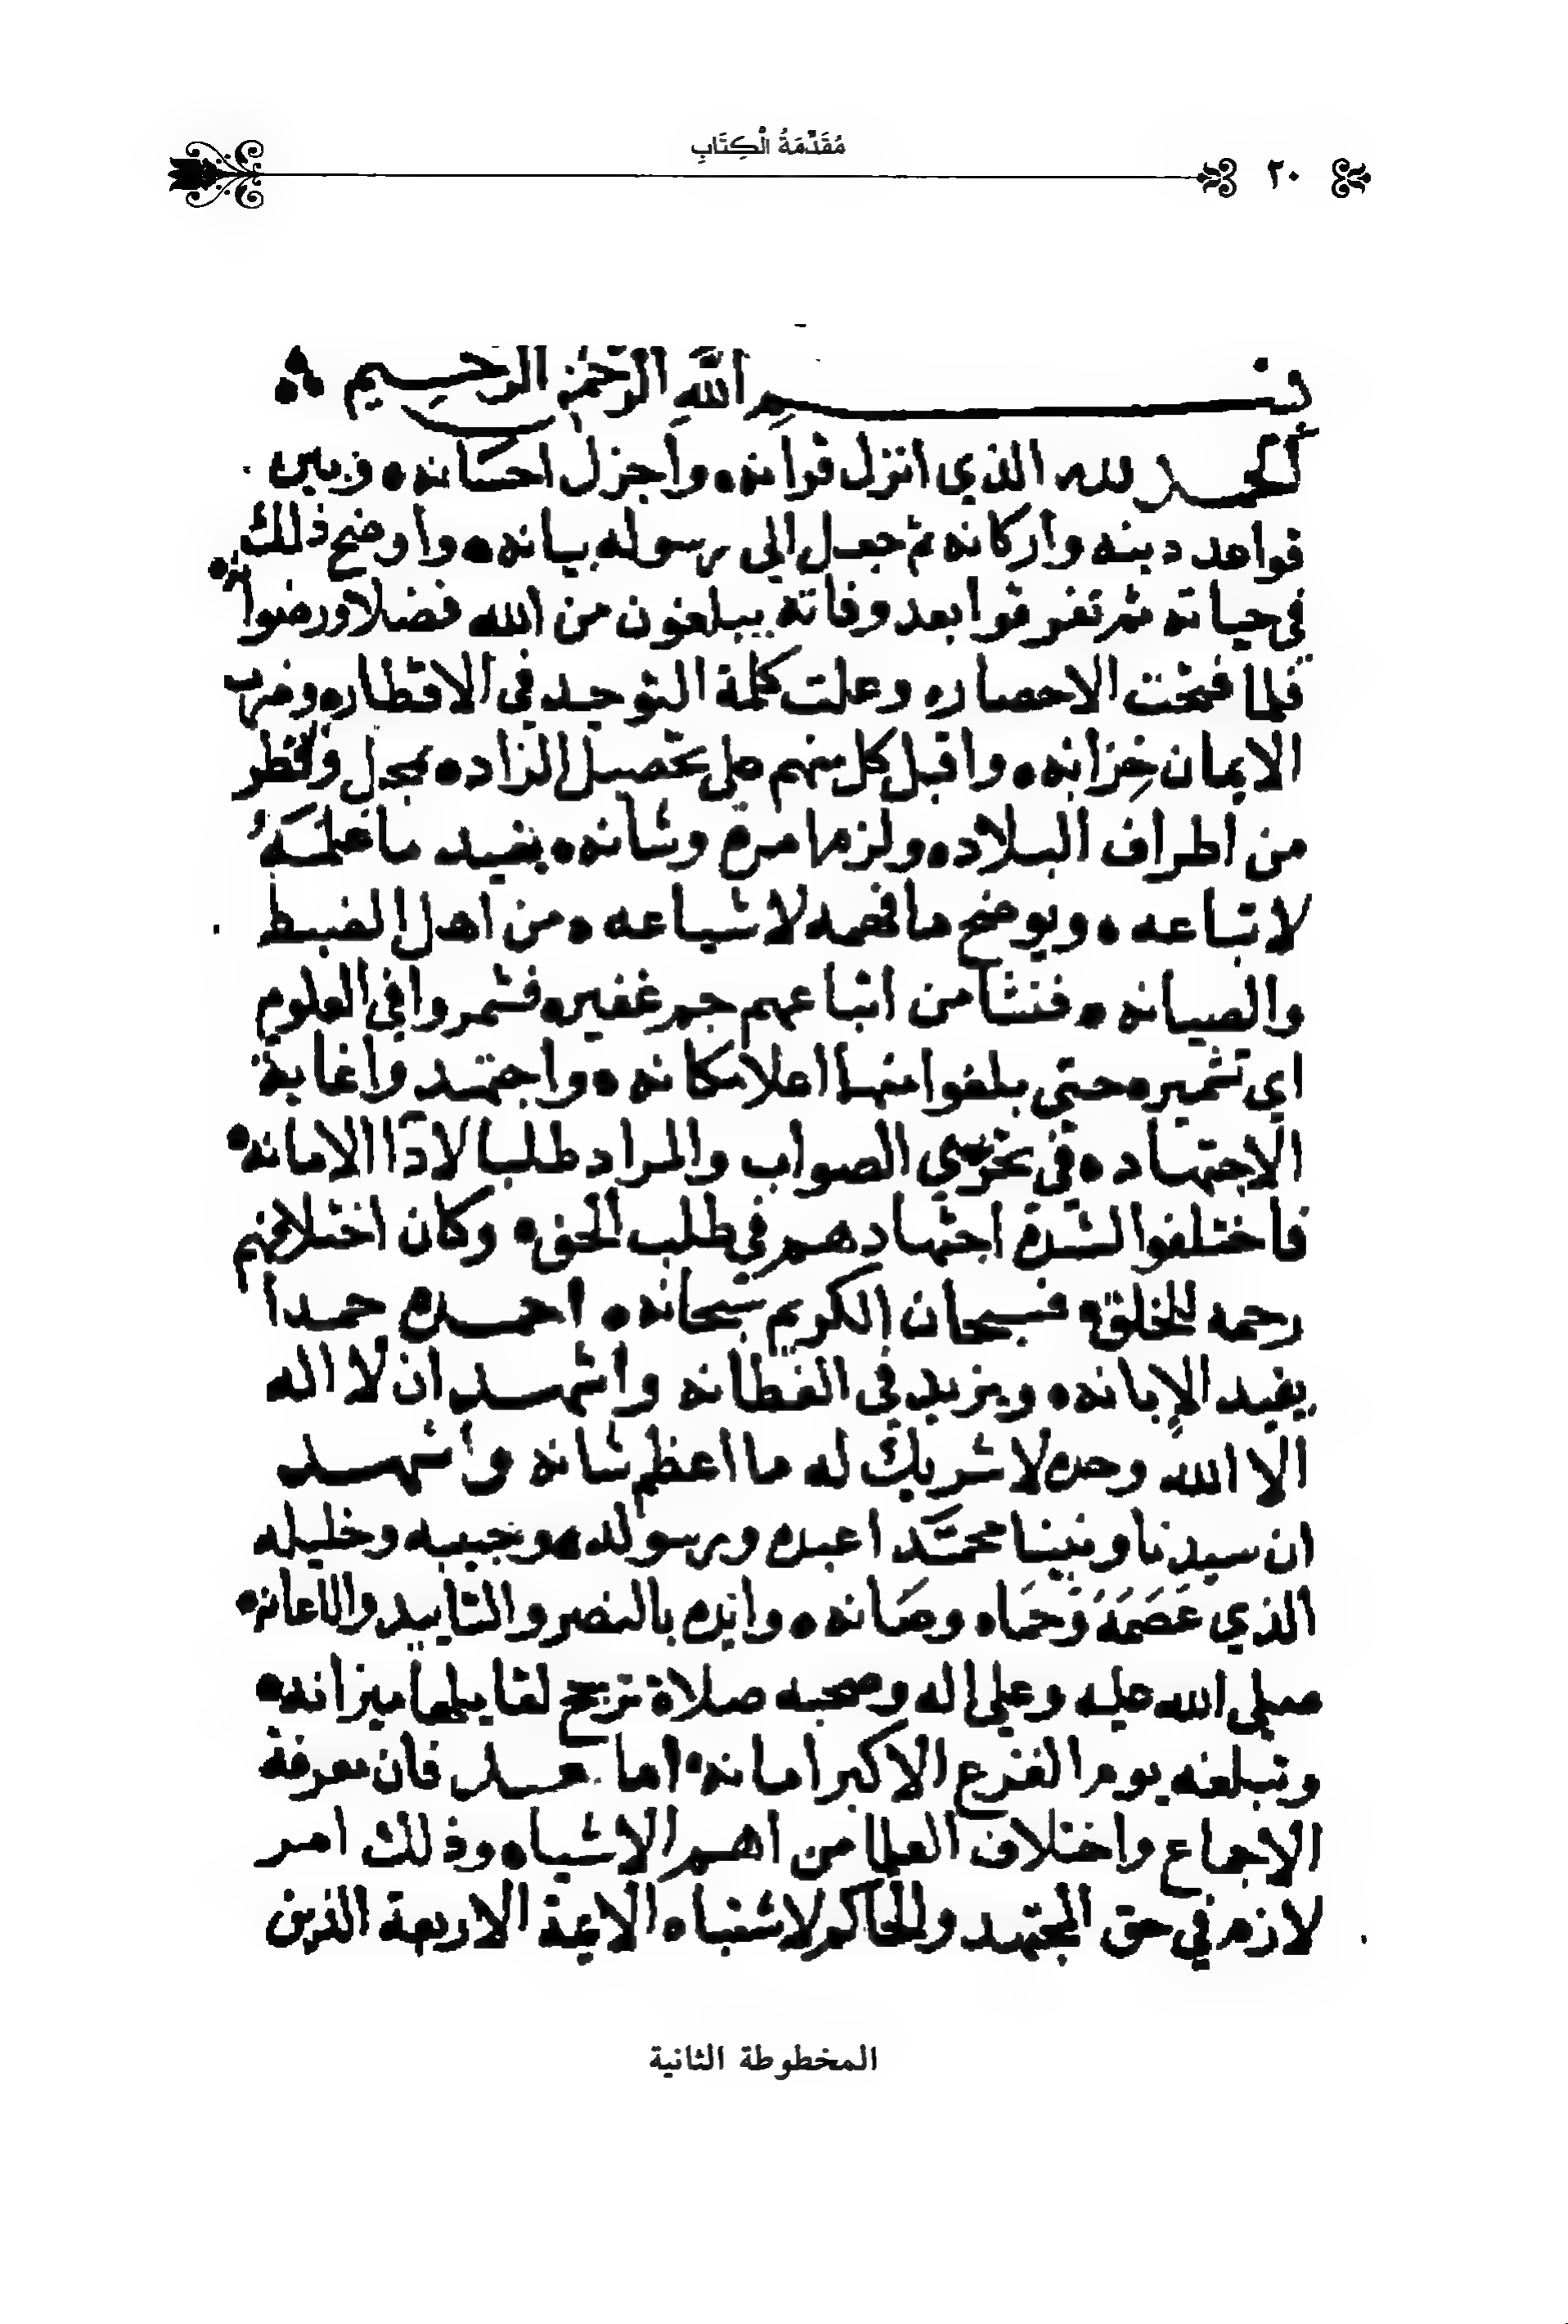 مُقَدِّمَةُ الْكِتَابِ
٢٠
بسم اللَّه الرَّحمٰن الرَّحِيم
الحمد لله الذي انزل قرانه واجزل احسانه وبين
قواعد دينه واركانه ثم جعل الى رسوله بيانه واوضح ذلك
في حياته ثم تفرقوا بعد وفاته يبلغون من الله فضلا ورضوانه
فلما فتحت الامصار وعلت كلمة التوحيد في الاقطار وضرب
الايمان جِرانه واقبل كل منهم على تحصيل الزاد وقطر
من اطراف البلاد ولزمها مرة وشانه يفيد ما علمَهُ
لاتباعه ويوضح ما فهمه لاشياعه من اهل الضبط
والصيانه فنشا من اتباعهم جم غفير فشمروا في العلوم
اي تشمير حتى بلغوا منها اعلا مكانه واجتهدوا غاية
الاجتهاد في تحرّي الصواب والمراد طلبا لادآ الامانه
فاختلفوا لشدة اجتهادهم في طلب الحق وكان اختلافهم
رحمه للخلق فسبحان الكريم سبحانه احمده حمدا
يفيد الإبانه ويزيد في الفطانه واشهد ان لا اله
الا الله وحده لا شريك له ما اعظم شانه واشهد
ان سيدنا ونبينا محمَّدا عبده ورسوله وحبيبه وخليله
الذي عَصَمَهُ وَحمَاه وصَانه وايده بالنصر والتاييد والاعانه
صلى الله عليه وعلى اله وصحبه صلاة ترجح لقايلها ميزانه
وتبلغه يوم الفزع الاكبر امانه اما بعد فان معرفة
الاجماع واختلاف العلما من اهم الاشياء وذلك امر
لازم في حق المجتهد والحاكم لاشتباه الايمة الاربعة الذين
المخطوطة الثانية